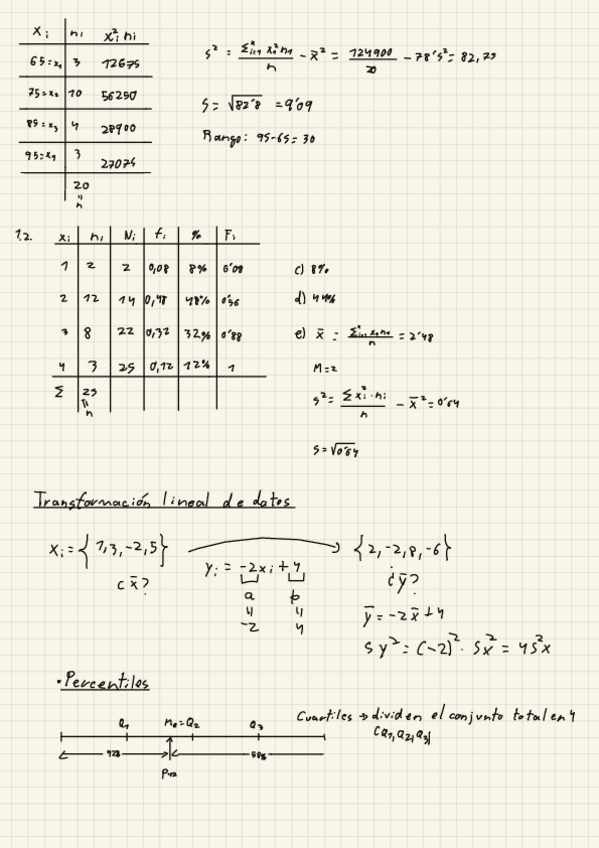 xᵢ nᵢ xᵢ² nᵢ
65=x₁ 3 12675
75=x₂ 10 56250
85=x₃ 4 28900
95=x₄ 3 27075
20
=
n
s² = Σᵢ₌₁ xᵢ² nᵢ / n − x̄² = 124900 / 20 − 78'5² = 82,75
S = √82'8 = 9'09
Rango: 95-65=30
1.2. xᵢ nᵢ Nᵢ fᵢ % Fᵢ
1 2 2 0,08 8% 0'08
2 12 14 0,48 48% 0'56
3 8 22 0,32 32% 0'88
4 3 25 0,12 12% 1
Σ 25
=
n
c) 8%
d) 44%
e) x̄ = Σᵢ₌₁ xᵢ nᵢ / n = 2'48
M=2
s² = Σ xᵢ² · nᵢ / n − x̄² = 0'64
S = √0'64
Transformación lineal de datos
xᵢ = {1, 3, -2, 5} {2, -2, 8, -6}
yᵢ = -2xᵢ + 4
¿x̄? ¿ȳ?
a b
= =
-2 4
ȳ = -2x̄ + 4
Sy² = (-2)² · Sx² = 4S²x
• Percentiles
Cuartiles → dividen el conjunto total en 4
(Q₁, Q₂, Q₃)
Q₁ Mₑ=Q₂ Q₃
42% 58%
P₄₂